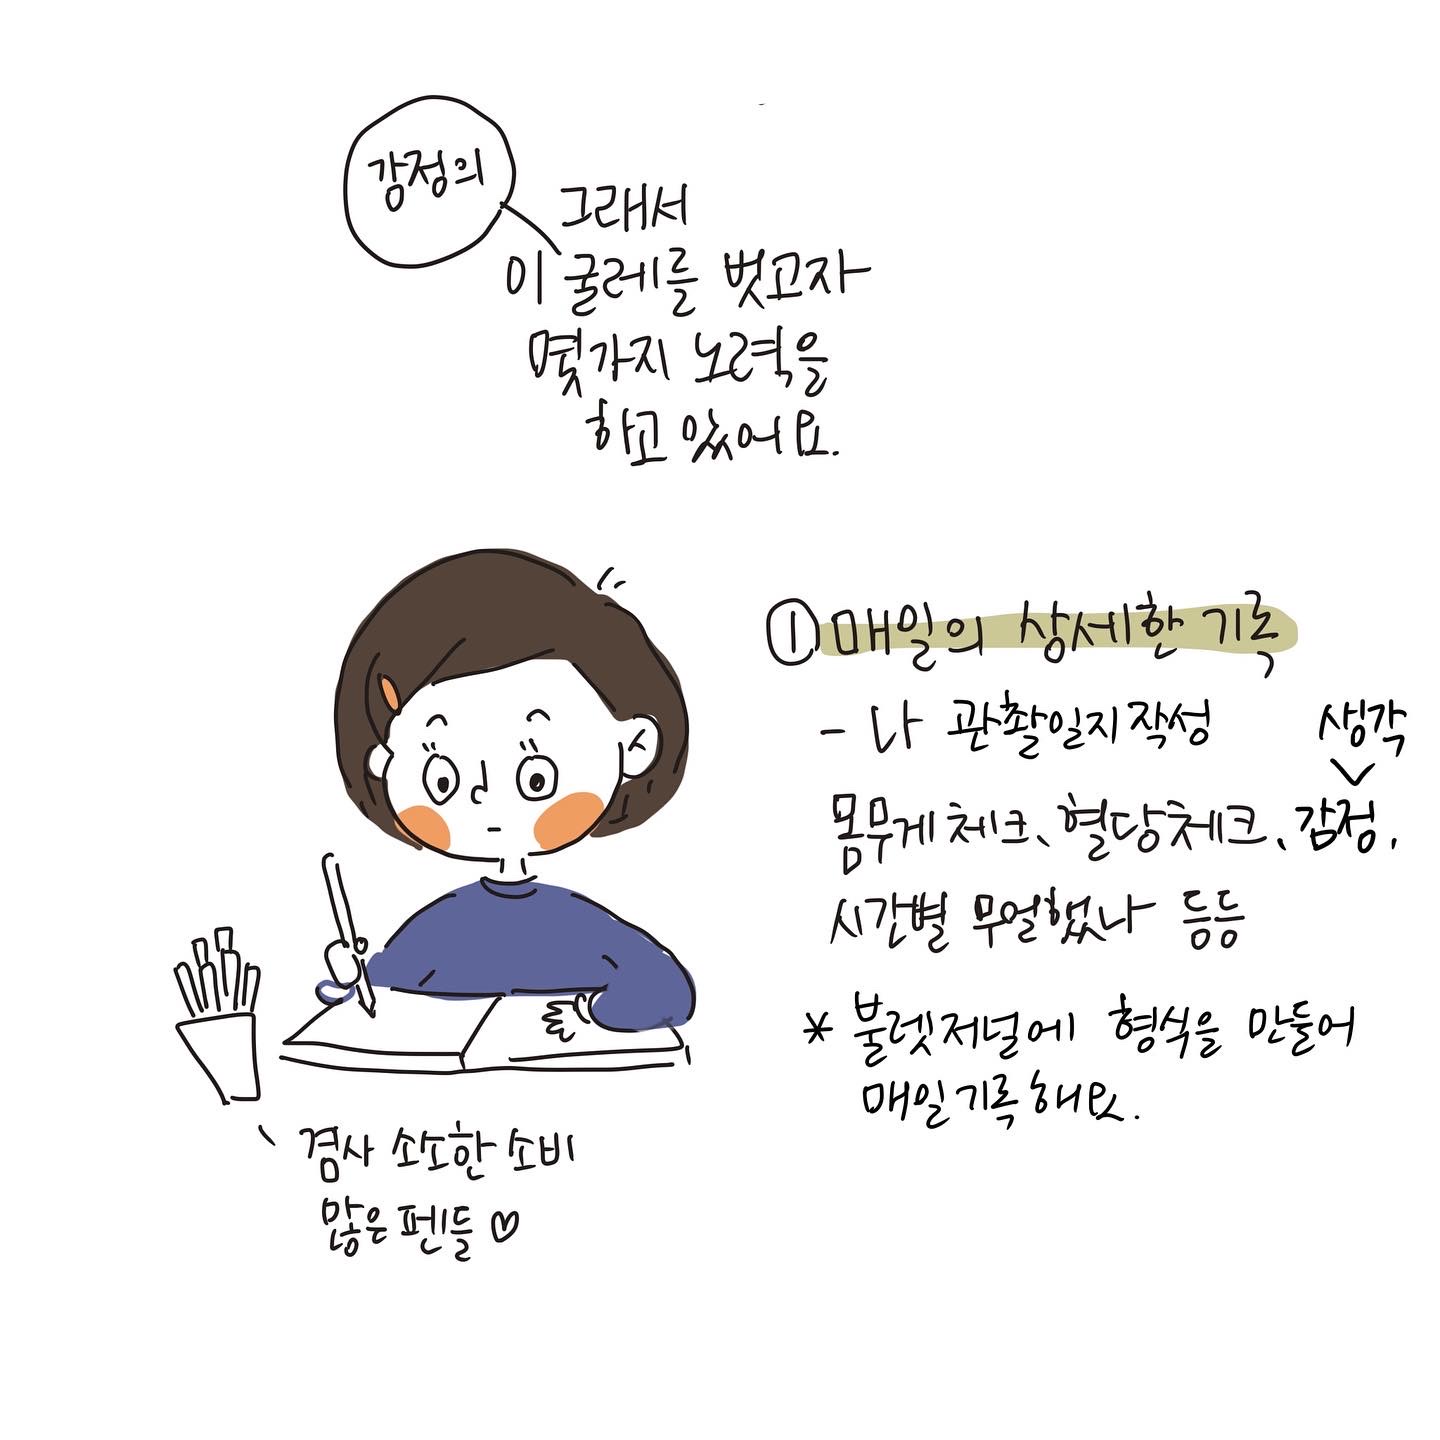 감정의
그래서
이 굴레를 벗고자
몇가지 노력을
하고 있어요.
① 매일의 상세한 기록
- 나 관찰일지 작성
생각
몸무게 체크、혈당체크、감정,
시간별 무얼했나 등등
* 불렛저널에 형식을 만들어
매일 기록해요.
겸사 소소한 소비
많은 펜들 ♡